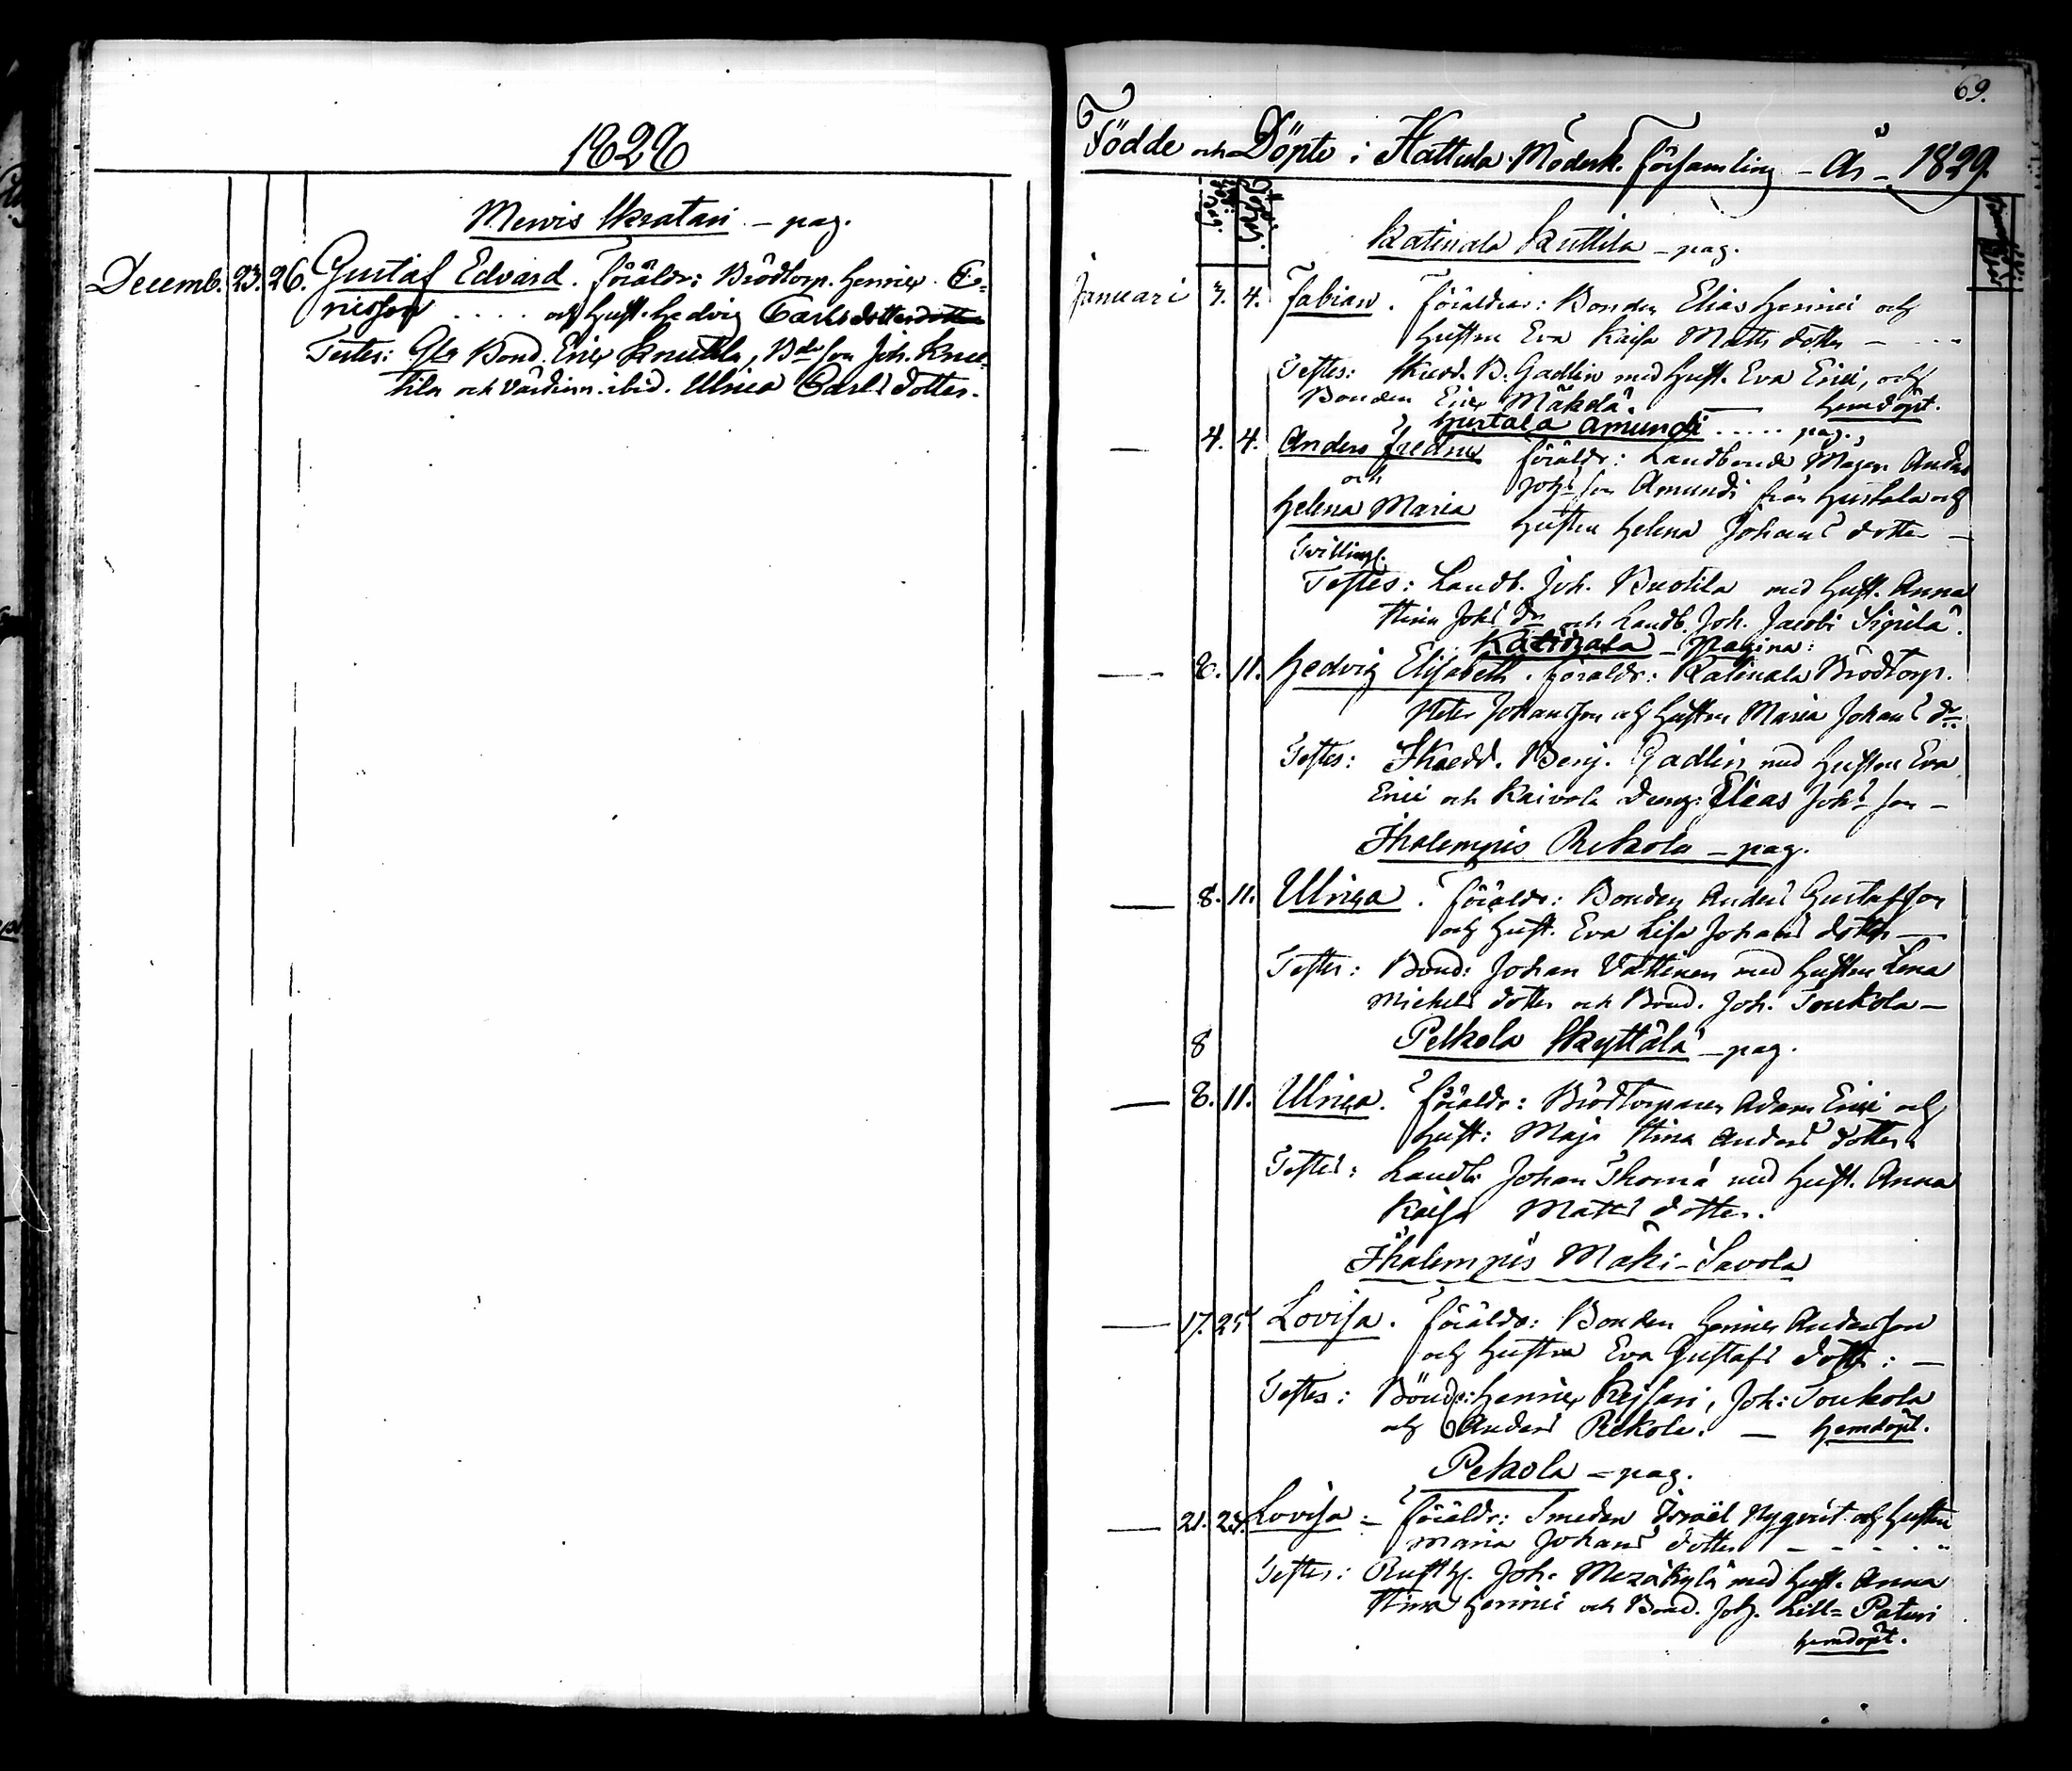 1828
Mervis Skratari – pag.
Decemb. 23. 26. Gustaf Edvard. Föräldr: Brödtorp. Henric E-
ricsson .... och Hust. Hedvig Carlsdotter
Testes: Bond. Eric Knuutila, Bde son Joh. Knuu-
tila och Värdinn. ibid. Ulrica Carls dotter.
69.
Födde och Döpte i Hattula Moderk. Församling – År – 1829.
Katinala Kuttila – pag.
Januari 3. 4. Fabian. Föräldrar: Bonden Elias Henrici och
Hustru Eva Kaisa Matts dotter –
Testes: Skredd. B. Gadlin med Hust. Eva Erici, och
Bonden Eric Mäkelä. Hemdöpt.
Hurtala Amundi ..... pag.
— 4. 4. Anders Fredric Föräldr: Landbonde Magen Anders
och Johs son Amundi från Hurtala och
Helena Maria Hustru Helena Johans dotter –
Tvilling.
Testes: Landb. Joh. Buotila med Hust. Anna
Stina Johs dr och Landb. Joh. Jacobi Sipilä.
Katinala – Pagina:
— 8. 11. Hedvig Elisabeth. Föräldr: Katinala Brödtorp.
Peter Johansson och Hustru Maria Johans dr
Testes: Skredd. Benj. Gadlin med Hustru Eva
Erici och Kaivola Dreng: Elias Johs son –
Ihalempis Rekola – pag.
— 8. 11. Ulrica. Föräldr: Bonden Anders Gustafsson
och Hust. Eva Lisa Johans dotter —
Testes: Bond: Johan Vättinen med Hustru Lena
Michels dotter och Bond. Joh. Toukola –
8 Pelkola Skyttälä – pag.
— 8. 11. Ulrica. Föräldr: Brödtorparen Adam Erici och
Hust: Maja Stina Anders dotter
Testes: Landb: Johan Thomæ med Hust. Anna
Kaisa Matts dotter.
Ihalempis Mäki-Savola
— 17. 25 Lovisa. Föräldr: Bonden Henric Andersson
och Hustru Eva Gustafs dotter: –
Testes: Bönd: Henric Keisari, Joh: Toukola
och Anders Rekola. — Hemdöpt.
Pekola – pag.
— 21. 24. Lovisa – Föräldr: Smeden Israël Nyqvist och Hustru
Maria Johans dotter – – – –
Testes: Rusth. Joh. Mezäkylä med Hust. Anna
Stina Henrici och Bond. Joh. Lill-Paturi
Hemdöpt.